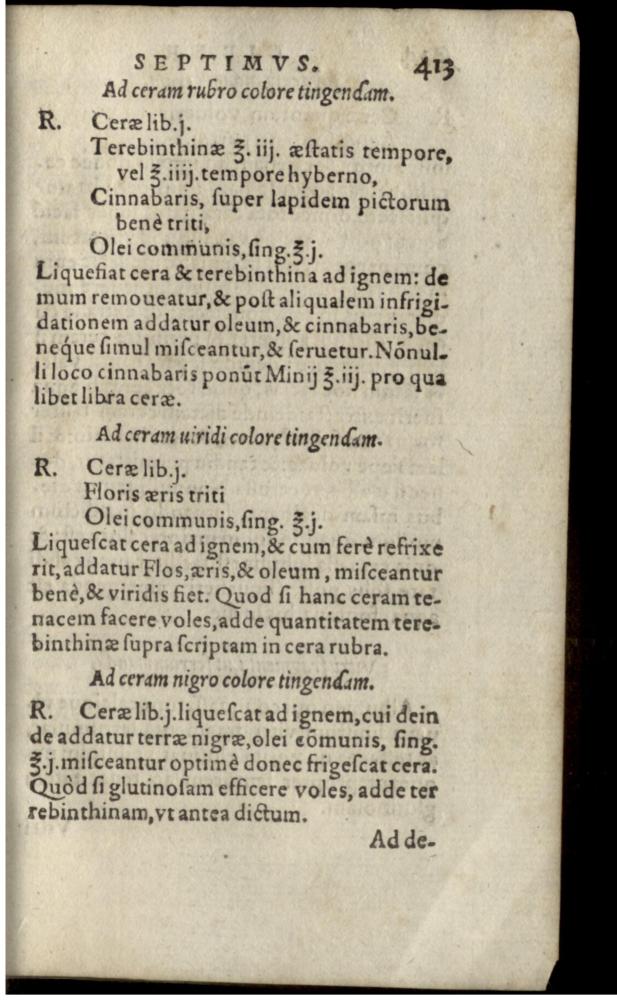 SEPTIMVS. 413
Ad ceram rubro colore tingendam.
R. Ceræ lib.j.
Terebinthinæ ℥. iij. æſtatis tempore,
vel ℥.iiij.tempore hyberno,
Cinnabaris, ſuper lapidem pictorum
benè triti,
Olei communis,ſing.℥.j.
Liquefiat cera & terebinthina ad ignem: de
mum remoueatur,& poſt aliqualem infrigi-
dationem addatur oleum,& cinnabaris,be-
neq́ue ſimul miſceantur,& ſeruetur.Nónul-
li loco cinnabaris ponũt Minij ℥.iij. pro qua
libet libra ceræ.
Ad ceram uiridi colore tingendam.
R. Ceræ lib.j.
Floris æris triti
Olei communis,ſing. ℥.j.
Liqueſcat cera ad ignem,& cum ferè refrixe
rit,addatur Flos,æris,& oleum, miſceantur
benè,& viridis fiet. Quod ſi hanc ceram te-
nacem facere voles,adde quantitatem tere-
binthinæ ſupra ſcriptam in cera rubra.
Ad ceram nigro colore tingendam.
R. Ceræ lib.j.liqueſcat ad ignem,cui dein
de addatur terræ nigræ,olei cõmunis, ſing.
℥.j.miſceantur optimè donec frigeſcat cera.
Quòd ſi glutinoſam efficere voles, adde ter
rebinthinam,vt antea dictum.
Ad de-